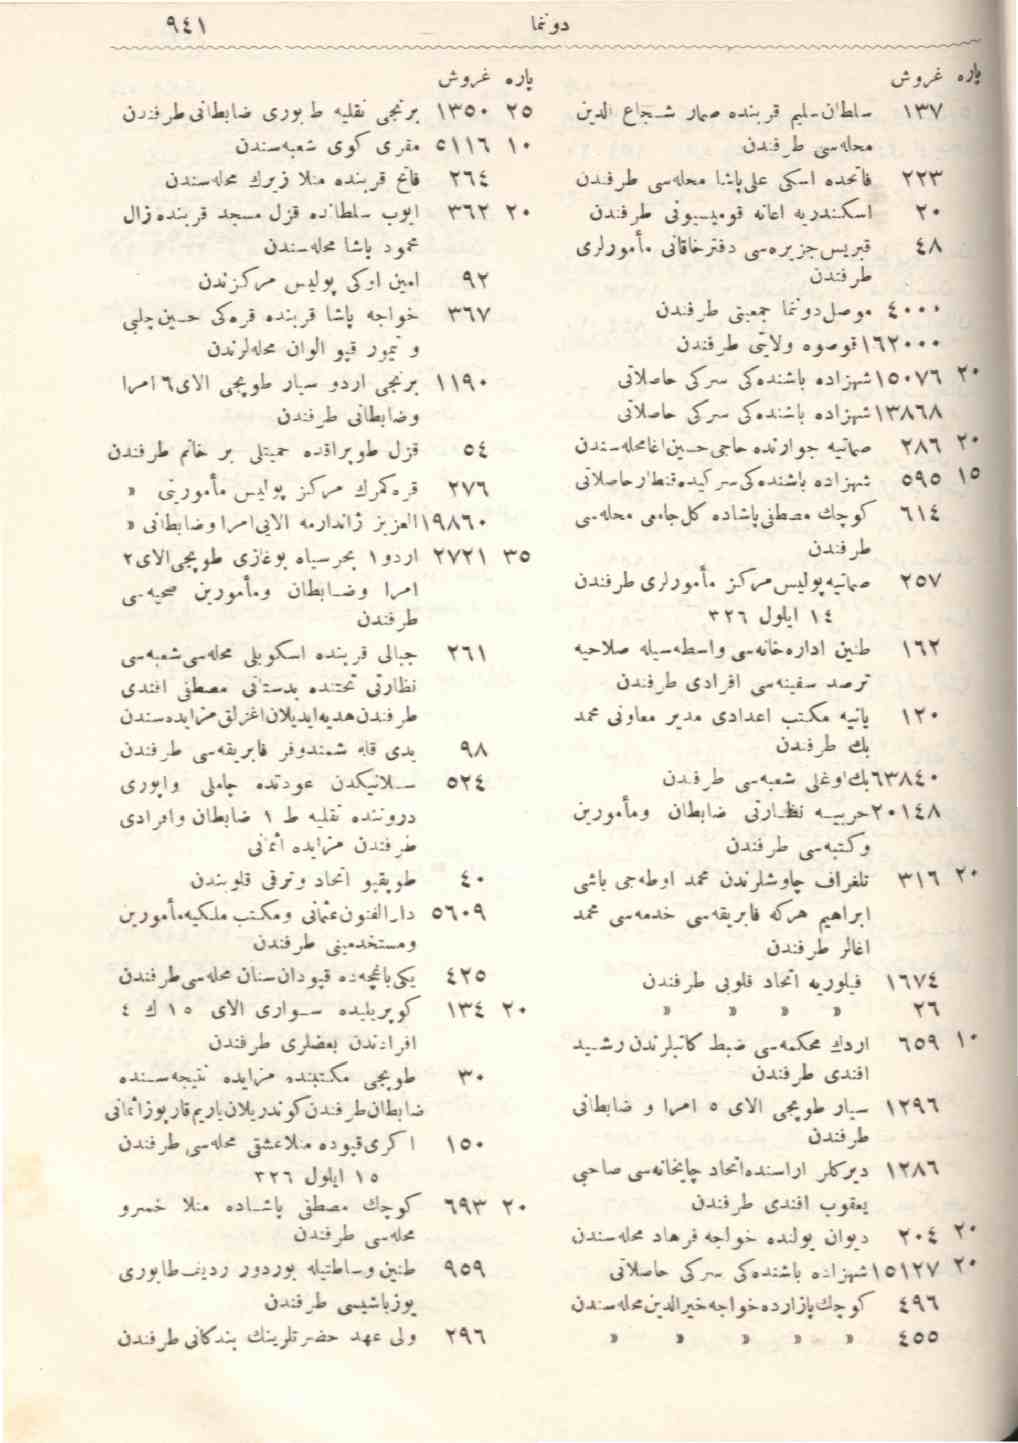 دوننما ٩٤١
پاره غروش
١٣٧ سلطان سليم قربنده صمار شجاع الدين
محله‌سى طرفندن
٢٢٣ فاتحده اسكى على پاشا محله‌سى طرفندن
٢٠ اسكندريه اعانه قوميسيونى طرفندن
٤٨ قبريس جزيره‌سى دفترخاقانى مأمورلرى
طرفندن
٤٠٠٠ موصل دوننما جمعيتى طرفندن
١٦٢٠٠٠ قوصوه ولايتى طرفندن
٢٠ ١٥٠٧٦ شهزاده باشنده‌كى سركى حاصلاتى
١٣٨٦٨ شهزاده باشنده‌كى سركى حاصلاتى
٢٠ ٢٨٦ صماتيه جوارنده حاجى حسين اغا محله‌سندن
١٥ ٥٩٥ شهزاده باشنده‌كى سركيده قنطار حاصلاتى
٦١٤ كوچك مصطفى پاشاده كل جامعى محله‌سى
طرفندن
٢٥٧ صماتيه پوليس مركز مأمورلرى طرفندن
١٤ ايلول ٣٢٦
١٦٢ طنين اداره‌خانه‌سى واسطه‌سيله صلاحيه
ترصد سفينه‌سى افرادى طرفندن
١٢٠ يانيه مكتب اعدادى مدير معاونى محمد
بك طرفندن
٦٣٨٤٠ بك‌اوغلى شعبه‌سى طرفندن
٢٠١٤٨ حربيه نظارتى ضابطان ومأمورين
وكتبه‌سى طرفندن
٢٠ ٣١٦ تلغراف چاوشلرندن محمد اوطه‌جى باشى
ابراهيم هركه فابريقه‌سى خدمه‌سى محمد
اغالر طرفندن
١٦٧٤ فيلوريه اتحاد قلوبى طرفندن
٢٦ » » » »
١٠ ٦٥٩ اردك محكمه‌سى ضبط كاتبلرندن رشيد
افندى طرفندن
١٢٩٦ سيار طوپجى الاى ٥ امرا و ضابطانى
طرفندن
١٢٨٦ ديركلر اراسنده اتحاد چايخانه‌سى صاحبى
يعقوب افندى طرفندن
٢٠ ٢٠٤ ديوان يولنده خواجه فرهاد محله‌سندن
٢٠ ١٥١٢٧ شهزاده باشنده‌كى سركى حاصلاتى
٤٩٦ كوچك پازارده خواجه خيرالدين محله‌سندن
٤٥٥ » » » » »
پاره غروش
٢٥ ١٣٥٠ برنجى نقليه طابورى ضابطانى طرفندن
١٠ ٥١١٦ مقرى كوى شعبه‌سندن
٢٦٤ فاتح قربنده منلا زيرك محله‌سندن
٢٠ ٣٦٢ ايوب سلطانده قزل مسجد قربنده زال
محمود پاشا محله‌سندن
٩٢ امين اوكى پوليس مركزندن
٣٦٧ خواجه پاشا قربنده قره‌كى حسين چلبى
و تيمور قپو الوان محله‌لرندن
١١٩٠ برنجى اردو سيار طوپجى الاى ٦ امرا
وضابطانى طرفندن
٥٤ قزل طوپراقده حميتلى بر خانم طرفندن
٢٧٦ قره‌كمرك مركز پوليس مأموريتى »
١٩٨٦٠ العزيز ژاندارمه الايى امرا وضابطانى »
٣٥ ٢٧٢١ اردو ١ بحرسياه بوغازى طوپجى الاى ٢
امرا وضابطان ومأمورين صحيه‌سى
طرفندن
٢٦١ جبالى قربنده اسكوبلى محله‌سى شعبه‌سى
نظارتى تحتنده بدستانى مصطفى افندى
طرفندن هديه ايديلان اغزلق مزايده‌سندن
٩٨ يدى قله شمندوفر فابريقه‌سى طرفندن
٥٢٤ سلانيكدن عودتده چاملى واپورى
دروننده نقليه ط ١ ضابطان وافرادى
طرفندن مزايده اثمانى
٤٠ طوپقپو اتحاد وترقى قلوبندن
٥٦٠٩ دارالفنون عثمانى ومكتب ملكيه مأمورين
ومستخدمينى طرفندن
٤٢٥ يكى باغچه‌ده قپودان سنان محله‌سى طرفندن
٢٠ ١٣٤ كوپريليده سوارى الاى ١٥ ك ٤
افرادندن بعضلرى طرفندن
٣٠ طوپجى مكتبنده مزايده نتيجه‌سنده
ضابطان طرفندن كوندريلان ياريم قارپوز اثمانى
١٥٠ اكرى‌قپوده منلاعشقى محله‌سى طرفندن
١٥ ايلول ٣٢٦
٢٠ ٦٩٣ كوچك مصطفى پاشاده منلا خسرو
محله‌سى طرفندن
٩٥٩ طنين وساطتيله بوردور رديف طابورى
يوزباشيسى طرفندن
٢٩٦ ولى عهد حضرتلرينك بندكانى طرفندن